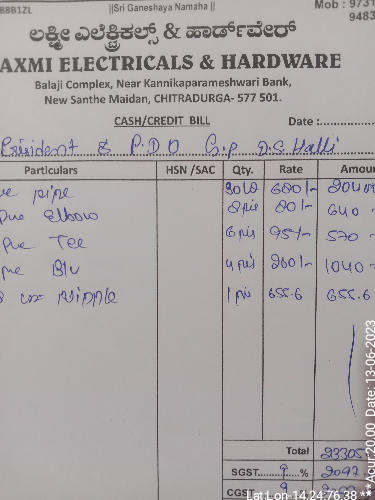 8B8B1ZL ||Sri Ganeshaya Namaha || Mob : 9731
9483
ಲಕ್ಷ್ಮೀ ಎಲೆಕ್ಟ್ರಿಕಲ್ಸ್ & ಹಾರ್ಡ್‌ವೇರ್
AXMI ELECTRICALS & HARDWARE
Balaji Complex, Near Kannikaparameshwari Bank,
New Santhe Maidan, CHITRADURGA- 577 501.
CASH/CREDIT BILL Date :
President & P.D.O G.P D.S Halli
Particulars HSN /SAC Qty. Rate Amoun
pipe 680/-
Elbow 8 pis 80/- 640 -
pvc Tee 6 pis 95/- 570 -
4 pis 260/- 1040 -
Nipple 1 pis 655.6 655.6
Total 23305
SGST 9 % 2097
CGST 9
Lat Lon-14.24,76.38 *** Acur:20.00 Date: 13-06-2023